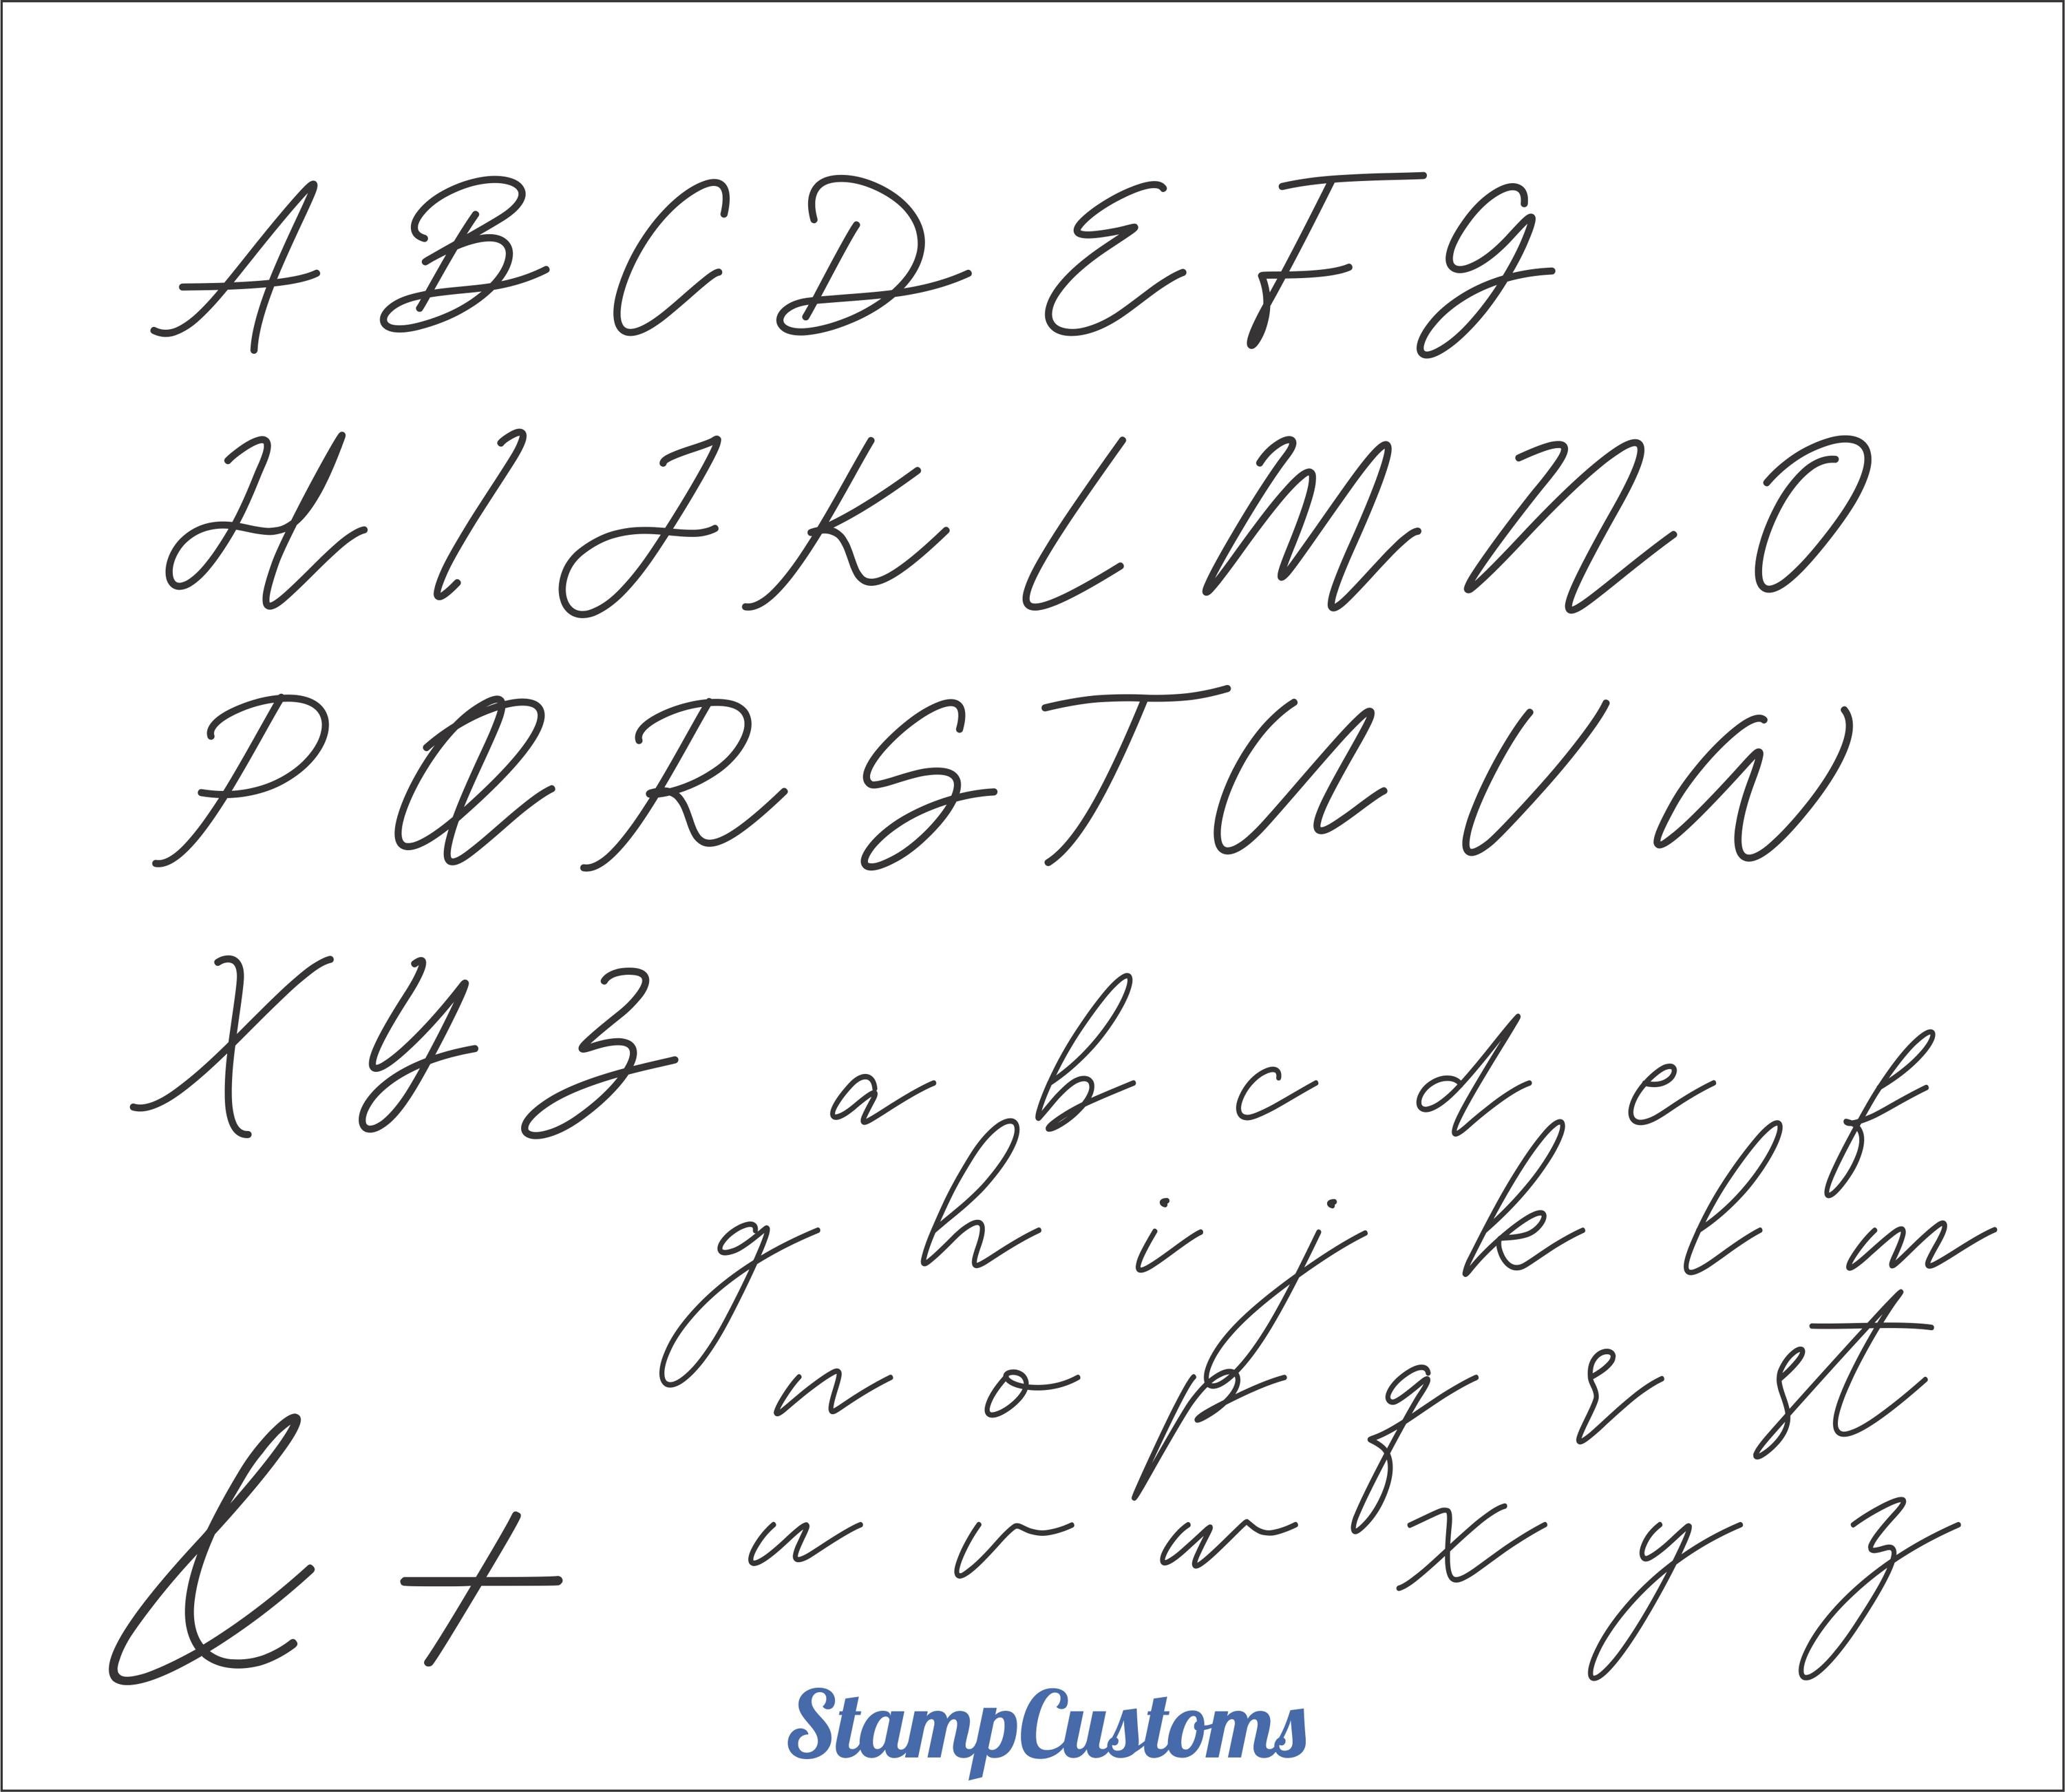 A B C D E F G
H I J K L M N O
P Q R S T U V W
X Y Z a b c d e f
g h i j k l m
n o p q r s t
& + u v w x y z
StampCustoms